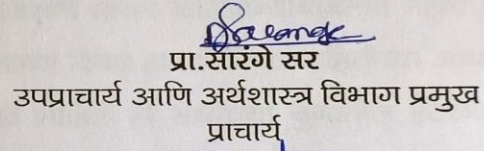 प्रा.सारंगे सर
उपप्राचार्य आणि अर्थशास्त्र विभाग प्रमुख
प्राचार्य